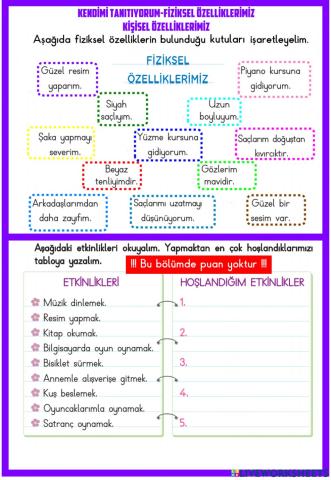 KENDİMİ TANITIYORUM-FİZİKSEL ÖZELLİKLERİMİZ
KİŞİSEL ÖZELLİKLERİMİZ
Aşağıda fiziksel özelliklerin bulunduğu kutuları işaretleyelim.
FİZİKSEL
ÖZELLİKLERİMİZ
Güzel resim
yaparım.
Piyano kursuna
gidiyorum.
Siyah
saçlıyım.
Uzun
boyluyum.
Şaka yapmayı
severim.
Yüzme kursuna
gidiyorum.
Saçlarım doğuştan
kıvırcıktır.
Beyaz
tenliyimdir.
Gözlerim
mavidir.
Arkadaşlarımdan
daha zayıfım.
Saçlarımı uzatmayı
düşünüyorum.
Güzel bir
sesim var.
Aşağıdaki etkinlikleri okuyalım. Yapmaktan en çok hoşlandıklarımızı
tabloya yazalım.
!!! Bu bölümde puan yoktur !!!
ETKİNLİKLERİ
Müzik dinlemek.
Resim yapmak.
Kitap okumak.
Bilgisayarda oyun oynamak.
Bisiklet sürmek.
Annemle alışverişe gitmek.
Kuş beslemek.
Oyuncaklarımla oynamak.
Satranç oynamak.
HOŞLANDIĞIM ETKİNLİKLER
1.
2.
3.
4.
5.
LIVEWORKSHEETS